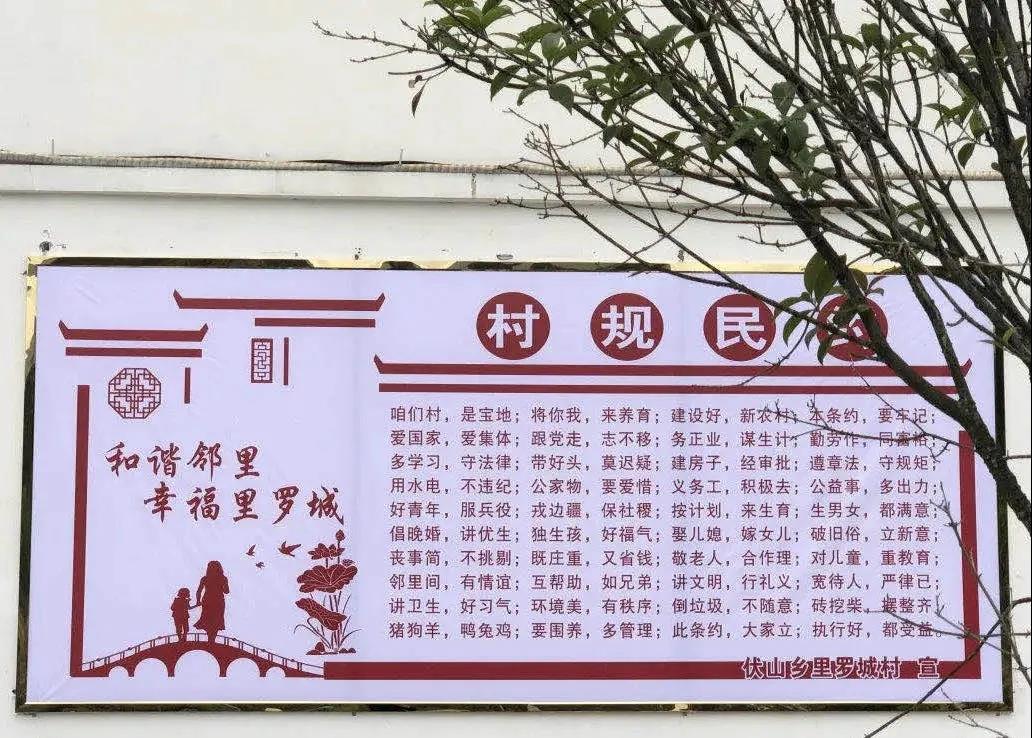 村规民
和谐邻里
幸福里罗城
咱们村，是宝地；将你我，来养育；建设好，新农村；本条约，要牢记；
爱国家，爱集体；跟党走，志不移；务正业，谋生计；勤劳作，同富裕；
多学习，守法律；带好头，莫迟疑；建房子，经审批；遵章法，守规矩；
用水电，不违纪；公家物，要爱惜；义务工，积极去；公益事，多出力；
好青年，服兵役；戎边疆，保社稷；按计划，来生育；生男女，都满意；
倡晚婚，讲优生；独生孩，好福气；娶儿媳，嫁女儿；破旧俗，立新意；
丧事简，不挑剔；既庄重，又省钱；敬老人，合作理；对儿童，重教育；
邻里间，有情谊；互帮助，如兄弟；讲文明，行礼义；宽待人，严律己；
讲卫生，好习气；环境美，有秩序；倒垃圾，不随意；砖挖柴，摆整齐；
猪狗羊，鸭兔鸡；要围养，多管理；此条约，大家立；执行好，都受益。
伏山乡里罗城村 宣